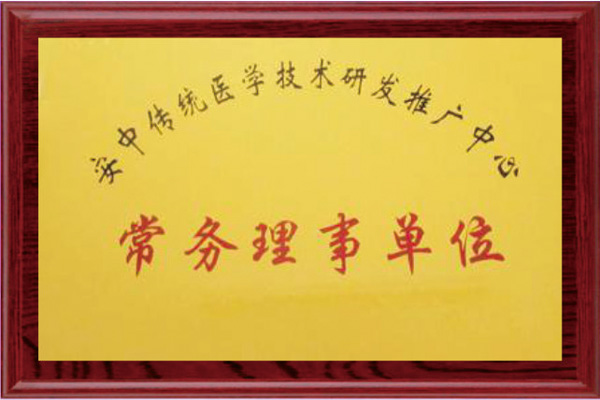 实中传统医学技术研发推广中心
常务理事单位